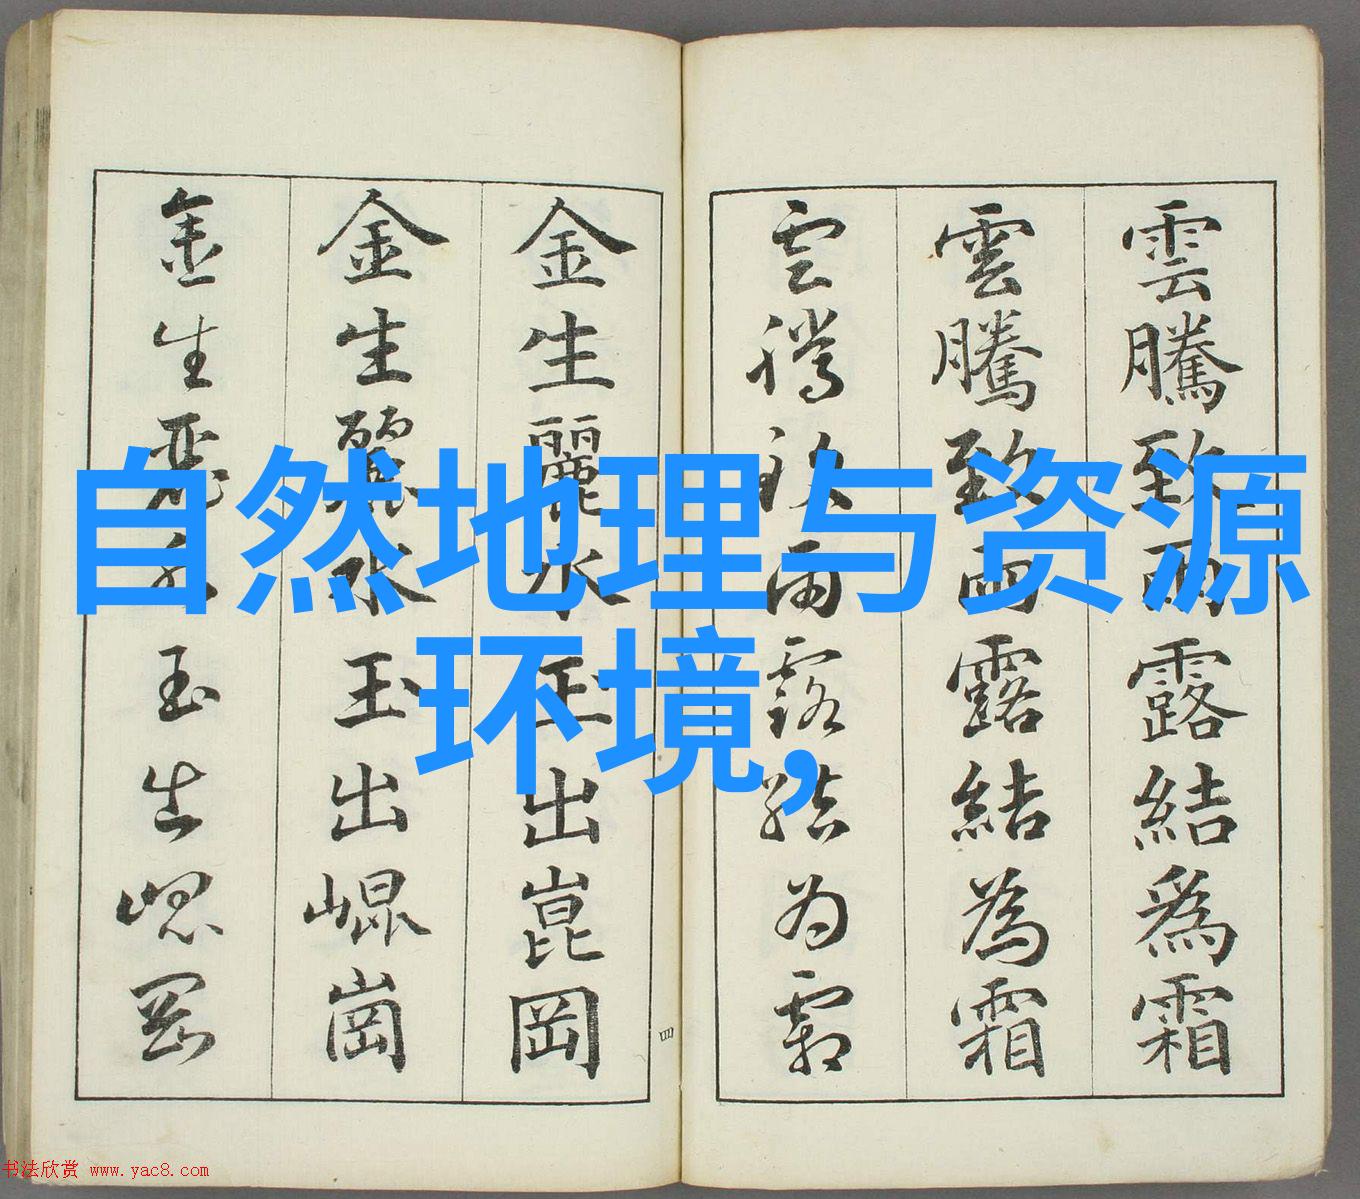 自然地理与资源
环境,
雲騰致雨露結爲霜
雲騰致雨露結為霜
雲騰致雨露結为霜
四
金生麗水玉出崑岡
金生麗水玉出崐崗
金生麗水玉出崐岡
书法欣赏 www.yac8.com